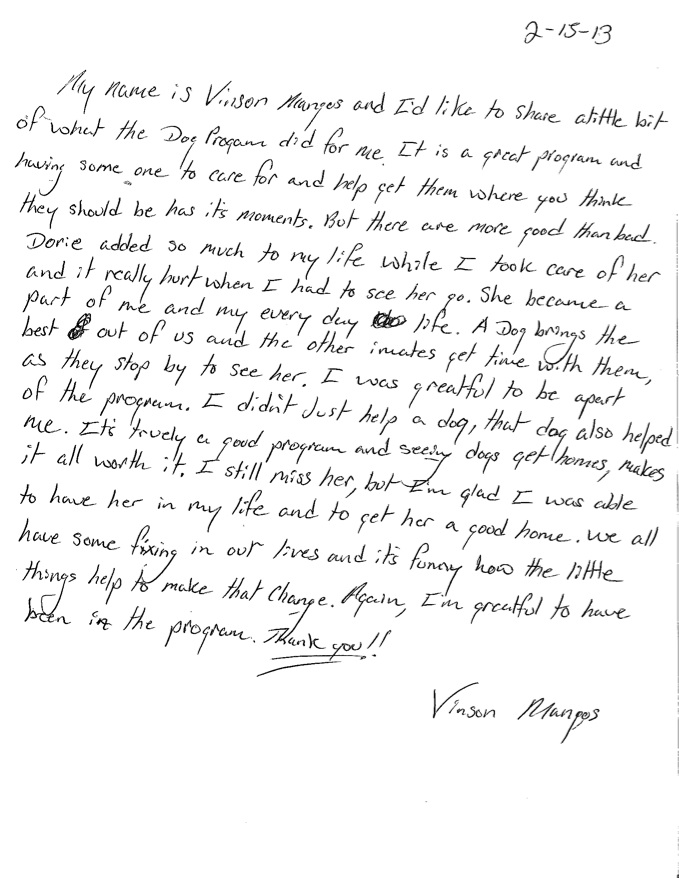 2-15-13
My name is Vinson Mangos and I'd like to share alittle bit
of what the Dog Progam did for me. It is a great program and
having some one to care for and help get them where you think
they should be has it's moments. But there are more good than bad.
Dorie added so much to my life while I took care of her
and it really hurt when I had to see her go. She became a
part of me and my every day life. A Dog brings the
best out of us and the other imates get time with them,
as they stop by to see her. I was greatful to be apart
of the program. I didn't Just help a dog, that dog also helped
me. It's truely a good program and seeing dogs get homes, makes
it all worth it. I still miss her, but I'm glad I was able
to have her in my life and to get her a good home. We all
have some fixing in out lives and it's funny how the little
things help to make that Change. Again, I'm greatful to have
been in the program. Thank you!!
Vinson Mangos